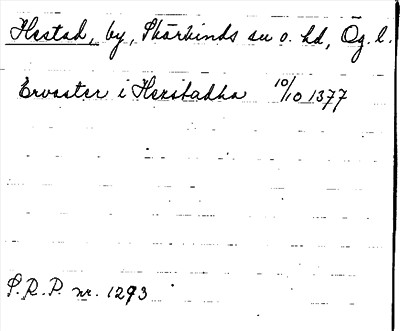 Hestad, by, Skärkinds sn o. hd, Ög. l.
Ervaster i Herstadha 10/10 1377
S.R.P. nr. 1293